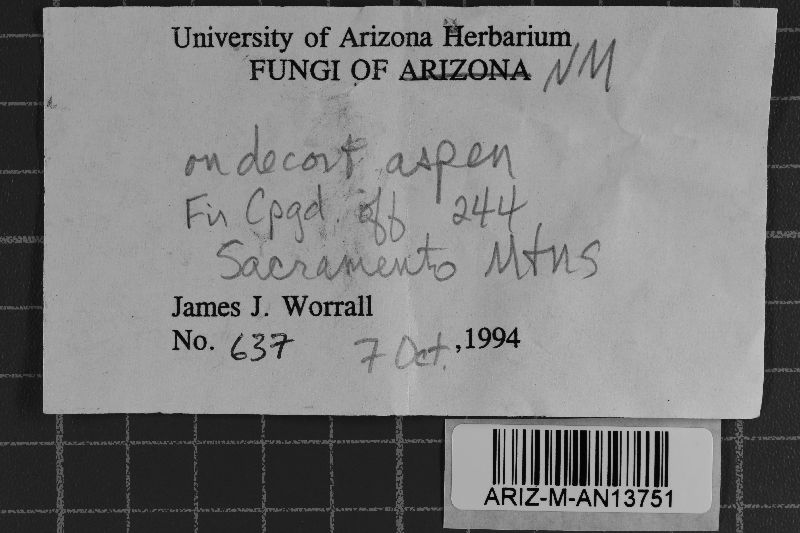 University of Arizona Herbarium
FUNGI OF ARIZONA NM
on decort. aspen
Fir Cpgd. off 244
Sacramento Mtns
James J. Worrall
No. 637 7 Oct. ,1994
ARIZ-M-AN13751